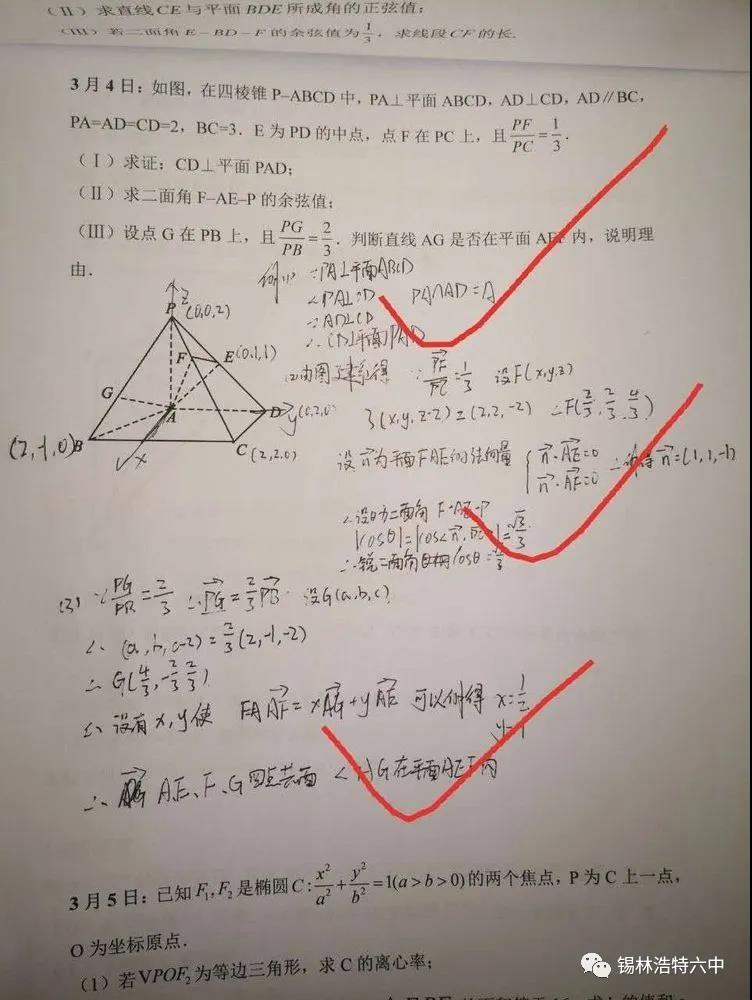 (Ⅱ) 求直线CE与平面BDE所成角的正弦值;
(Ⅲ) 若二面角E-BD-F的余弦值为1/3,求线段CF的长.
3月4日:如图,在四棱锥P–ABCD中,PA⊥平面ABCD,AD⊥CD,AD∥BC,
PA=AD=CD=2,BC=3.E为PD的中点,点F在PC上,且PF/PC=1/3.
(Ⅰ)求证:CD⊥平面PAD;
(Ⅱ)求二面角F–AE–P的余弦值;
(Ⅲ)设点G在PB上,且PG/PB=2/3.判断直线AG是否在平面AEF内,说明理
由.
∵PA⊥平面ABCD
∴PA⊥CD PA∩AD=A
∵AD⊥CD
∴CD⊥平面PAD
P z (0,0,2)
F E (0,1,1)
G
A D y (0,2,0)
(2,-1,0) B x C (2,2,0)
∵PF/PC=1/3 设F(x,y,z)
3(x,y,z-2)=(2,2,-2) ∴F(2/3,2/3,4/3)
设n为平面FAE的法向量 n·AE=0 n·AF=0 ∴解得n=(1,1,-1)
∴设θ为二面角F-AE-P
|cosθ|=|cos<n, √3/3
∴锐二面角 cosθ=√3/3
(3) ∵PG/PB=2/3 ∴PG=2/3PB 设G(a,b,c)
∴(a,b,c-2)=2/3(2,-1,-2)
∴G(4/3,-2/3,2/3)
∴设有x,y使 AF=xAG+yAE 可以解得 x=1/2
y=1
∴A、E、F、G四点共面 ∴AG在平面AEF内
3月5日:已知F₁,F₂是椭圆C:x²/a²+y²/b²=1(a>b>0)的两个焦点,P为C上一点,
O为坐标原点.
(1)若VPOF₂为等边三角形,求C的离心率;
锡林浩特六中